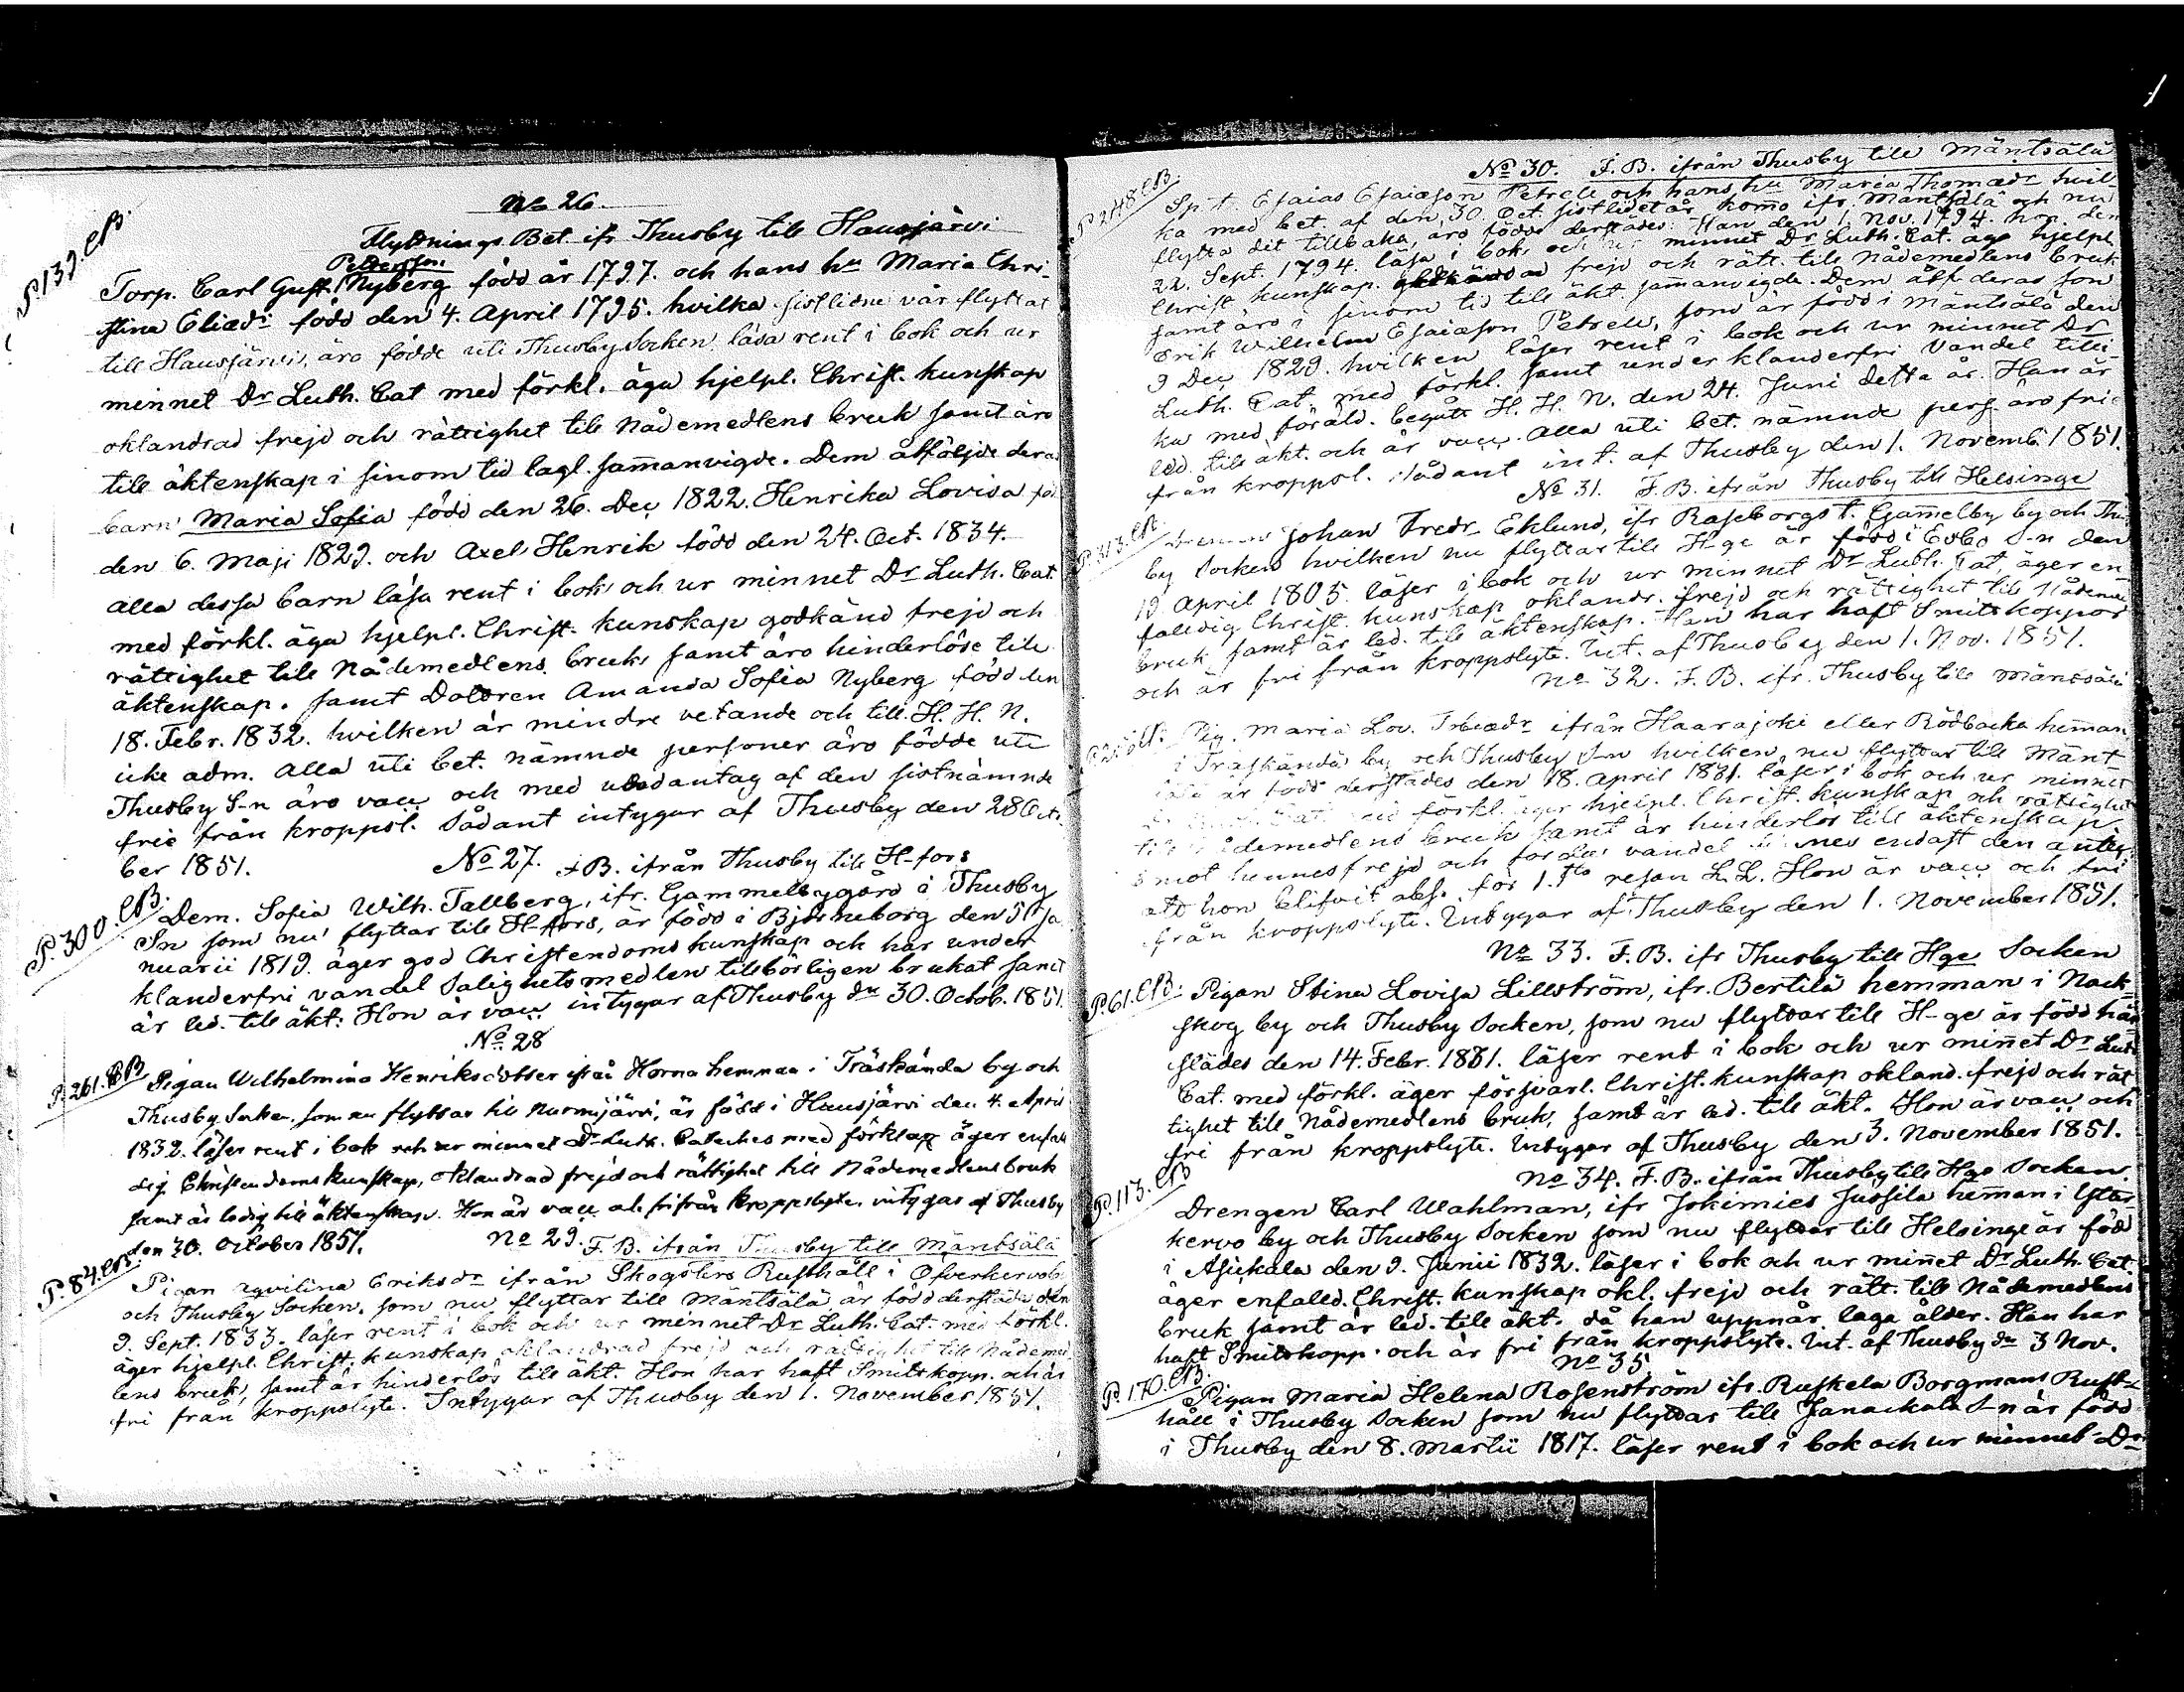 No 26
Flyttnings Bet. ifr Thusby till Hausjärvi
P. 139. CB.
Pettersson
Torp. Carl Gust. Nyberg född år 1797. och hans hu Maria Chri-
stina Eliædr född den 4. April 1795. hvilka sistlidne vår flyttat
till Hausjärvi, äro födde uti Thusby Socken läsa rent i bok och ur
minnet Dr Luth. Cat med förkl. äga hjelpl. Christ. kunskap
oklandrad frejd och rättighet till Nådemedlens bruk samt äro
till äktenskap i sinom tid lagl. sammanvigde. Dem åtfölja dera
barn Maria Sofia född den 26. Dec 1822. Henrika Lovisa föd
den 6. Maji 1829. och Axel Henrik född den 24. Oct. 1834.
Alla dessa barn läsa rent i bok och ur minnet Dr Luth. Cat.
med förkl. äga hjelpl. Christ. kunskap godkänd frejd och
rättighet till Nådemedlens bruk samt äro hinderlöse till
äktenskap. samt Dottren Amanda Sofia Nyberg född den
18. Febr. 1832. hvilken är mindre vetande och till H. H. N.
icke adm. Alla uti bet. nämnde personer äro födde uti
Thusby S-n äro vacc och med undantag af den sistnämnde
frie från kroppsl. Sådant intygar af Thusby den 28 Octo
ber 1851.
No 27. F.B. ifrån Thusby till H-fors
P. 300. CB.
Dem. Sofia Wilh. Tallberg, ifr. Gammelbygård i Thusby
Sn som nu flyttar till H-fors, är född i Björneborg den 5 Ja
nuarii 1819. äger god Christendoms kunskap och har under
klanderfri vandel Salighetsmedlen tillbörligen brukat samt
är led. till äkt. Hon är vacc intygar af Thusby dn 30. Octob. 1851.
No 28
P. 261. CB
Pigan Wilhelmina Henriksdotter ifrån Horna hemman i Träskända by och
Thusby Socken som nu flyttar till Nurmijärvi, är född i Hausjärvi den 4. April
1832. läser rent i bok och ur minnet Dr Luth. Cateches med förklar äger enfal
dig Christendoms kunskap, oklandrad frejd och rättighet till Nådemedlens bruk
samt är ledig till äktenskap. Hon är vacc och fri från kroppslyte intygas af Thusby
den 30. October 1851.
No 29. F.B. ifrån Thusby till Mäntsälä
P. 84. CB.
Pigan Eriksdr ifrån Skogsters Rusthåll i Öfverkervo by
och Thusby Socken, som nu flyttar till Mäntsälä är född derstädes den
9. Sept. 1833. läser rent i bok och ur minnet Dr Luth. Cat. med förkl.
äger hjelpl. Christ. kunskap oklandrad frejd och rättighet till Nådemed
lens bruk, samt är hinderlös till äkt. Hon har haft Smittkopp. och är
fri från kroppslyte. Intygar af Thusby den 1. November 1851.
No 30. F.B. ifrån Thusby till Mäntsälä
P. 248. CB.
Sp. t. Esaias Esaiæson Petrell och hans hu Maria Thomædr hvil-
ka med bet. af den 30. Oct. sistlidet år komo ifr. Mäntsälä och nu
flytta dit tillbaka, äro födde derstädes: Han den 1. Nov. 1794. hon den
22. Sept. 1794. läsa i bok och ur minnet Dr Luth. Cat. äga hjelpl.
Christ. kunskap. frejd och rätt. till Nådemedlens bruk
samt äro i sinom tid till äkt. sammanvigde. Dem åtf. deras son
Erik Wilhelm Esaiæson Petrell, som är född i Mäntsälä den
9 Dec 1829. hvilken läser rent i bok och ur minnet Dr
Luth. Cat. med förkl. samt under klanderfri vandel tilli-
ka med föräld. begått H. H. N. den 24. Juni detta år. Han är
led. till äkt. och är vacc. Alla uti bet. nämnde pers. äro frie
från kroppsl. Sådant int. af Thusby den 1. Novemb. 1851.
No 31. F.B. ifrån Thusby till Helsinge
P. 313. CB.
Johan Fredr. Eklund, ifr Raseborgs t. Gammelby by och Thus
by Socken hvilken nu flyttar till H-ge är född i Esbo S-n den
19. April 1805. läser i bok och ur minnet Dr Luth. Cat, äger en
faldig Christ. kunskap oklandr. frejd och rättighet till Nådeme
bruk samt är led. till äktenskap. Han har haft Smittkoppor
och är fri från kroppslyte. Int. af Thusby den 1. Nov. 1851.
No 32. F.B. ifr. Thusby till Mäntsälä
Pig. Maria Lov. ifrån Haarajoki eller Rödbacka heman
i Träskända by och Thusby S-n hvilken nu flyttar till Mänt
sälä är född derstädes den 18. April 1831. läser i bok och ur minnet
förkl. äger hjelpl. Christ. kunskap och rättighet
till Nådemedlens bruk samt är hinderlös till äktenskap
emot hennes frejd och vandel endast den anteg
att hon blifvit abs. för 1. sta resan L.L. Hon är vacc och fri
från kroppslyte. Intygar af Thusby den 1. November 1851.
No 33. F.B. ifr Thusby till Hge Socken
P. 61. CB.
Pigan Stina Lovisa Lillström, ifr. Bertila hemman i Nack-
skog by och Thusby Socken, som nu flyttar till H-ge är född här
städes den 14. Febr. 1831. läser rent i bok och ur minnet Dr Luth
Cat. med förkl. äger försvarl. Christ. kunskap okland. frejd och rät
tighet till Nådemedlens bruk, samt är led. till äkt. Hon är vacc och
fri från kroppslyte. Intygar af Thusby den 3. November 1851.
No 34. F.B. ifrån Thusby till Hge Socken
P. 113. CB
Drengen Carl Wahlman, ifr Jokimies Jussila heman i Ytter
kervo by och Thusby Socken som nu flyttar till Helsinge är född
i Asickala den 9. Junii 1832. läser i bok och ur minnet Dr Luth. Cat.
äger enfalld. Christ. kunskap okl. frejd och rätt. till Nådemedlens
bruk samt är led. till äkt. då han uppnår laga ålder. Han har
haft Smittkopp. och är fri från kroppslyte. Int. af Thusby dn 3 Nov.
No 35
P. 170. CB.
Pigan Maria Helena Rosenström ifr. Ruskela Borgmans Rust-
håll i Thusby Socken som nu flyttar till Janackala S-n är född
i Thusby den 8. Martii 1817. läser rent i bok och ur minnet Dr